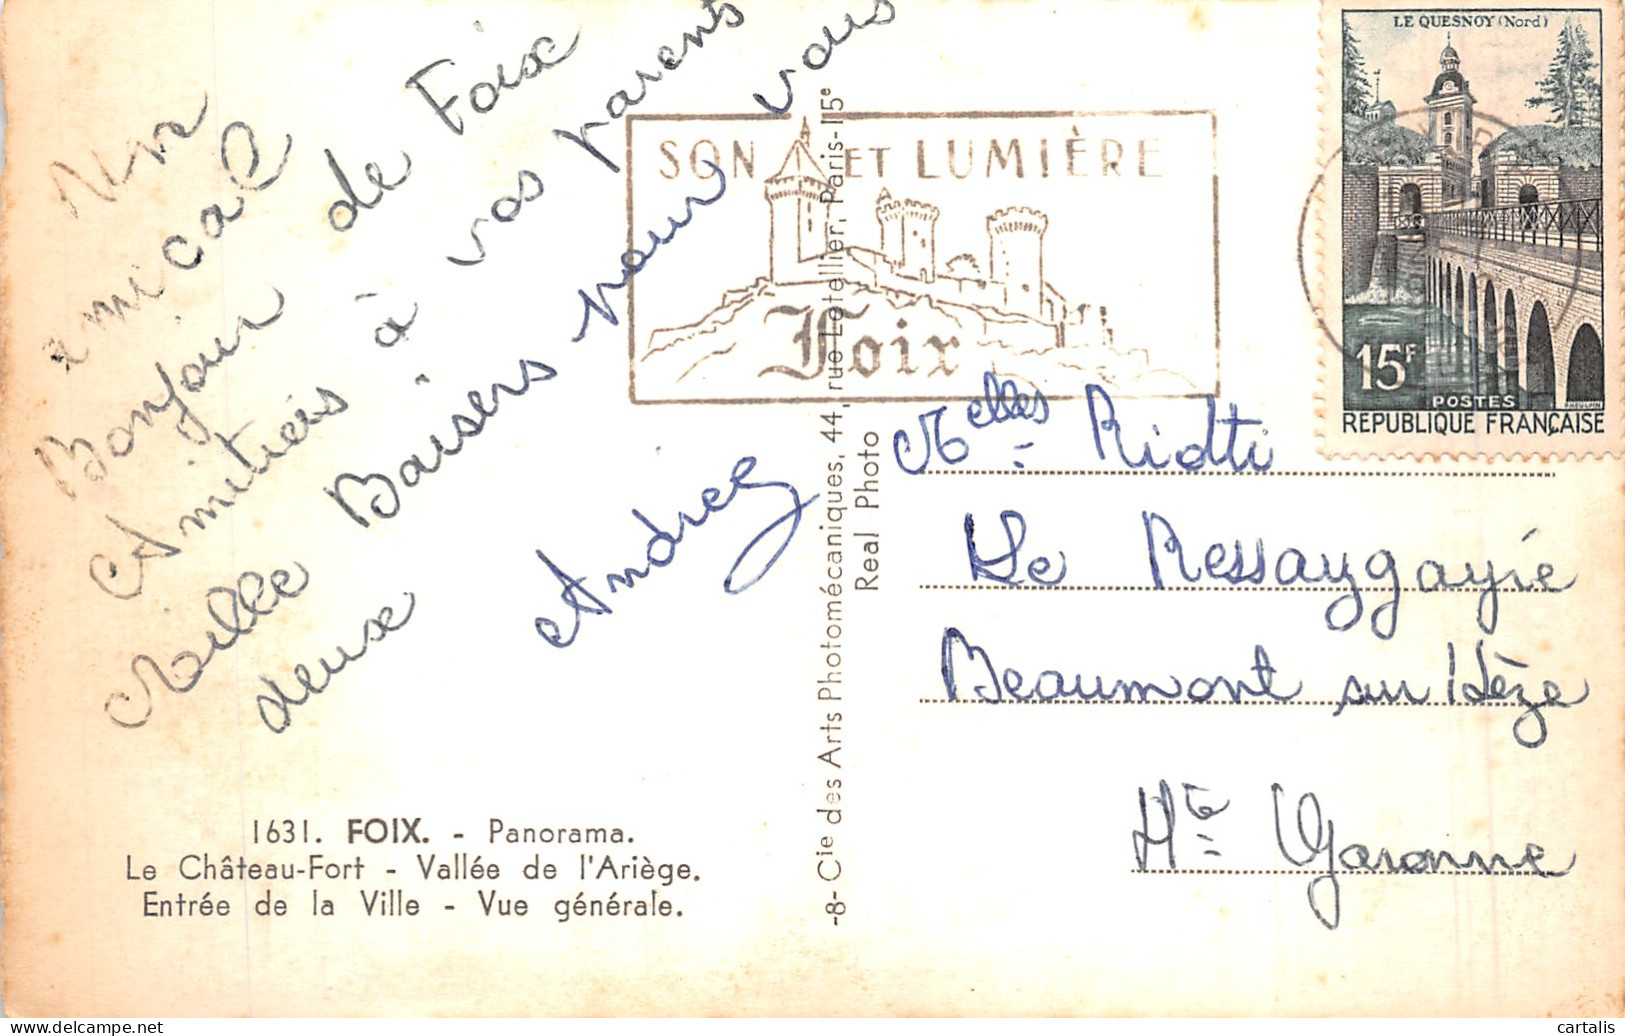 Un
amical
Bonjour de Foix
Amitiés à vos parents
Mille Baisers pour vous
deux
Andrée
1631. FOIX. - Panorama.
Le Château-Fort - Vallée de l'Ariège.
Entrée de la Ville - Vue générale.
-8- Cie des Arts Photomécaniques, 44, rue Letellier, Paris-15e
Real Photo
SON ET LUMIÈRE
Foix
LE QUESNOY (Nord)
15F
POSTES
REPUBLIQUE FRANÇAISE
Melles Ridti
Le Ressaygayié
Beaumont sur Lèze
Hte Garonne
cartalis